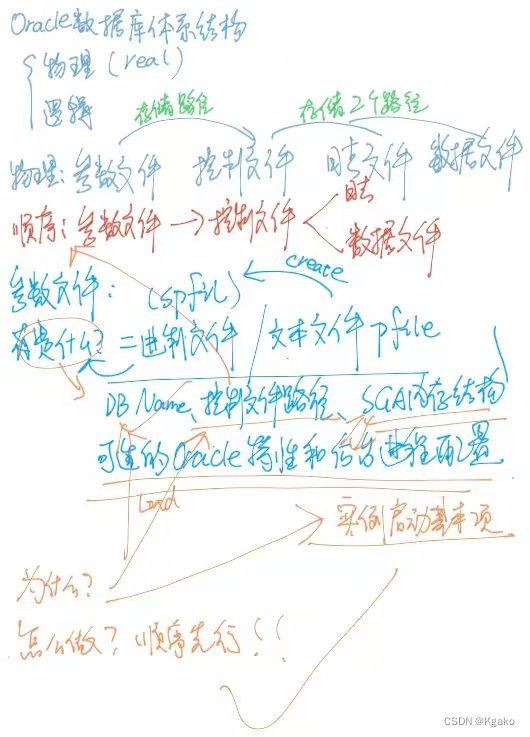 Oracle数据库体系结构
物理(real)
逻辑
存储路径 存储2个路径
物理:参数文件 控制文件 日志文件 数据文件
顺序:参数文件→控制文件 日志
数据文件
create
参数文件: (spfile)
存费什么? 二进制文件 文本文件 pfile
DB Name、控制文件路径、SGA内存结构
可选的Oracle特性和后台进程配置
Load
实例启动基本项
为什么?
怎么做? 顺序先行!!
CSDN @Kgako